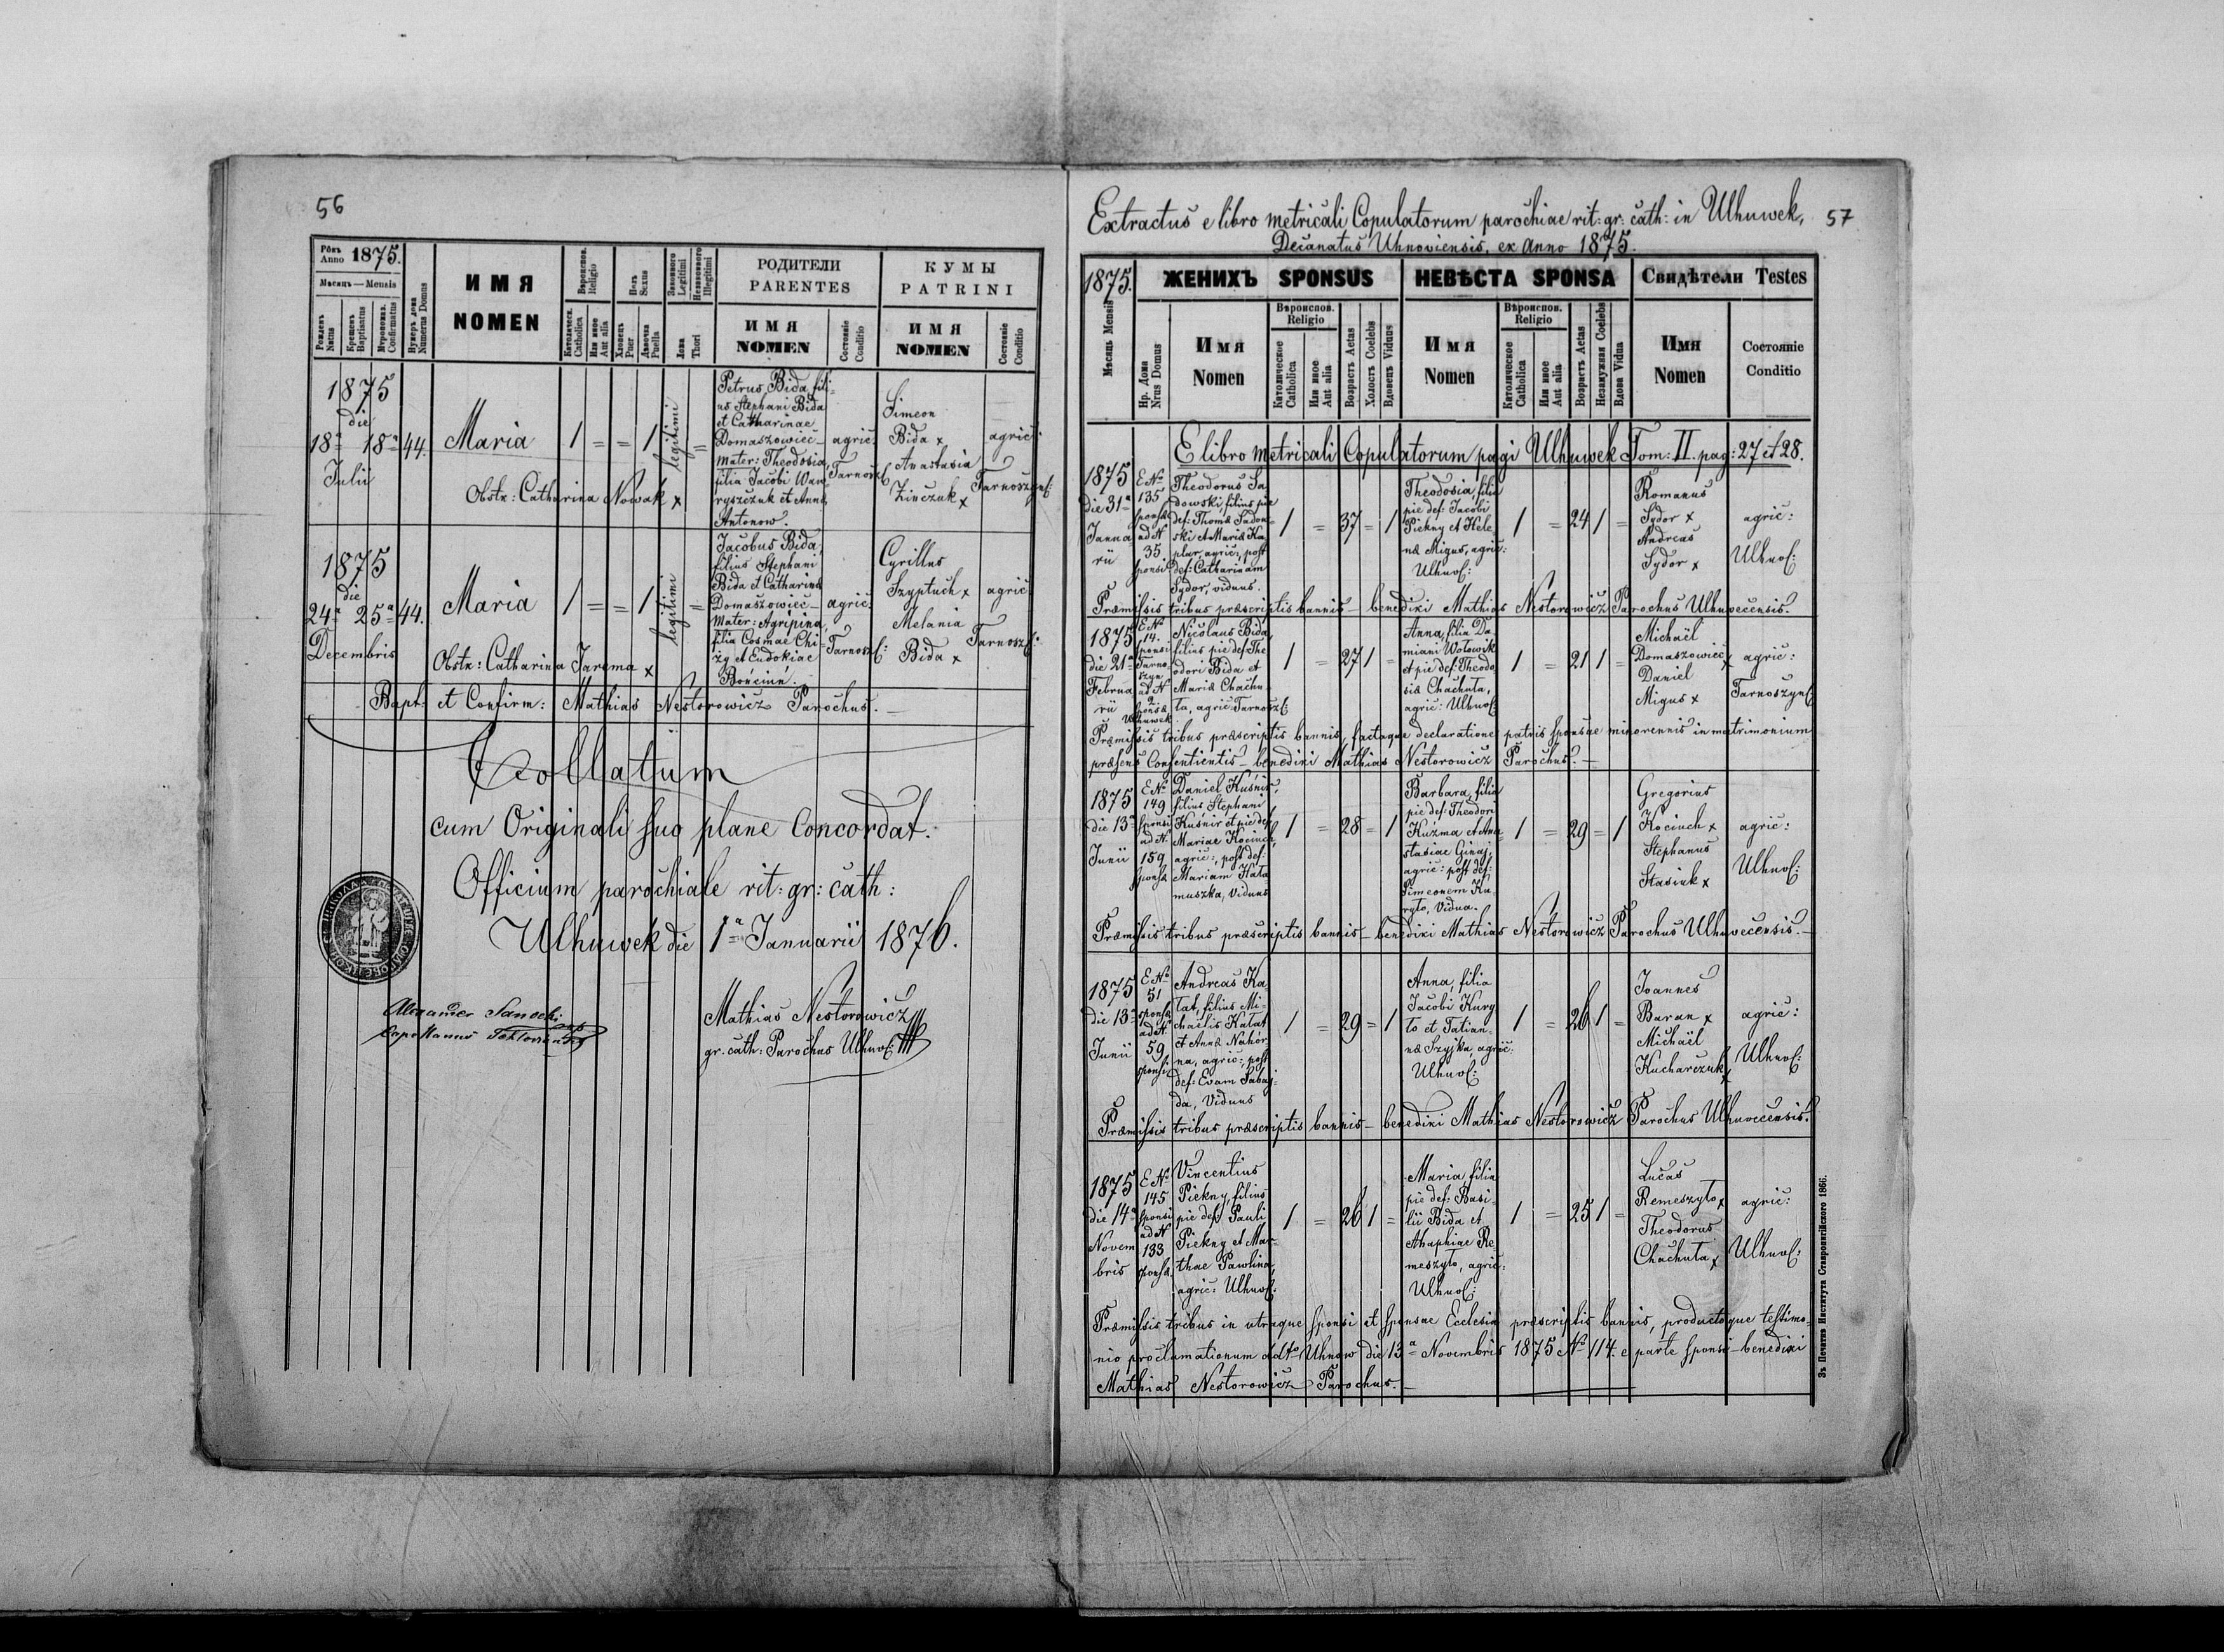 56
Рôкъ
Anno 1875.
Мѣсяцъ — Mensis
Рожденъ
Natus
Крещенъ
Baptisatus
Мѵропомаз.
Confirmatus
Нумеръ дома
Numerus Domus
ИМЯ
NOMEN
Вѣроиспов.
Religio
Католическ.
Catholica
Или иное
Aut alia
Полъ
Sexus
Хлопецъ
Puer
Дѣвочка
Puella
Законного
Legitimi
Незаконного
Illegitimi
Ложа
Thori
РОДИТЕЛИ
PARENTES
ИМЯ
NOMEN
Состоянiе
Conditio
КУМЫ
PATRINI
ИМЯ
NOMEN
Состоянiе
Conditio
1875
die
18ª 18ª 44. Maria 1 = = 1 legitimi =
Julii
Obstr: Catharina Nowak x
Petrus Bida, fili-
us Stephani Bida
et Catharinae
Domaszowiec –
Mater: Theodosia,
filia Jacobi Waw
ryszczuk et Anna
Antonow.
agric:
Tarnosz:
Simeon
Bida x
Anastasia
Zinczuk x
agric:
Tarnoszyns:
1875
die
24ª 25ª 44. Maria 1 = = 1 legitimi =
Decembris
Obstr: Catharina Jarema x
Jacobus Bida,
filius Stephani
Bida et Catharina
Domaszowiec –
Mater: Agripina,
filia Cosmae Chi-
zy et Eudokiae
agric:
Tarnosz:
Cyrillus
Szyptuch x
Melania
Bida x
agric
Tarnosz:
Bapt: et Confirm: Mathias Nestorowicz Parochus. –
Collatum
cum Originali suo plane Concordat.
Officium parochiale rit: gr: cath:
Ulhuwek die 1ª Januarii 1876.
Alexander Sanocki
Mathias Nestorowicz
gr. cath: Parochus Ulhuv:
57
Extractus e libro metricali Copulatorum parochiae rit: gr: cath: in Ulhuwek,
Decanatus Uhnoviensis, ex Anno 1875.
1875.
ЖЕНИХЪ SPONSUS
НЕВѢСТА SPONSA
Свидѣтели Testes
Мѣсяцъ Mensis
Нр. Дома
Nrus Domus
Имя
Nomen
Вѣроиспов.
Religio
Католическое
Catholica
Или иное
Aut alia
Возрастъ Aetas
Холостъ Coelebs
Вдовецъ Viduus
Имя
Nomen
Вѣроиспов.
Religio
Католическое
Catholica
Или иное
Aut alia
Возрастъ Aetas
Незамужная Coelebs
Вдова Vidua
Имя
Nomen
Состоянiе
Conditio
E libro metricali Copulatorum pagi Ulhuwek Tom: II. pag: 27 et 28.
1875
die 31ª
Janua-
rii
E Nº
135
sponsæ
ad N
35.
sponsi
Theodorus Sa
dowski, filius pie
def: Thomæ Sadow-
ski et Mariæ Ka
plur, agric:, post
def: Catharinam
Sydor, viduus.
1 = 37 = 1
Theodosia, filia
pie def: Jacobi
Piekny et Hele-
næ Migus, agric:
Ulhuv:
1 = 24 1 =
Romanus
Sydor x
Andreas
Sydor x
agric:
Ulhuv:
Præmissis tribus præscriptis bannis – benedixi Mathias Nestorowicz Parochus Ulhuvecensis.
1875
die 21ª
Februa
rii
E Nº
14.
sponsi
Tarno-
szyn
ad N
2
sponsæ
Ulhuwek
Nicolaus Bida,
filius pie def: The
odori Bida et
Mariæ Chachu-
ta, agric: Tarnosz:
1 = 27 1 =
Anna, filia Da-
miani Wołowik
et pie def: Theodo
siæ Chachuta,
agric: Ulhuv:
1 = 21 1 =
Michaël
Domaszowiec x
Daniel
Migus x
agric:
Tarnoszyns:
Præmissis tribus præscriptis bannis, factaque declaratione patris sponsae minorennis in matrimonium
præsens Consentientis – benedixi Mathias Nestorowicz Parochus. –
1875
die 13ª
Junii
E Nº
149
sponsi
ad N.
159
sponsæ
Daniel Kuśnir,
filius Stephani
Kuśnir et pie def:
Mariae Kociuch,
agric:, post def:
Mariam Hała
muszka, Viduus
1 = 28 = 1
Barbara, filia
pie def: Theodori
Kuźma et Ana-
stasiae Ginaj,
agric: post def:
Simeonem Ku-
ryto, Vidua.
1 = 29 = 1
Gregorius
Kociuch x
Stephanus
Stasiuk x
agric:
Ulhuv:
Præmissis tribus præscriptis bannis – benedixi Mathias Nestorowicz Parochus Ulhuvecensis. –
1875
die 13ª
Junii
E Nº
51
sponsæ
ad N.
59
sponsi
Andreas Ka
łat, filius Mi-
chaelis Kałat
et Annæ Nahór-
na, agric:, post
def: Evam Sabaj-
da, Viduus
1 = 29 = 1
Anna, filia
Jacobi Kury
to et Tatian-
næ Szyjka, agric:
Ulhuv:
1 = 26 1 =
Joannes
Baran x
Michaël
Kucharczuk x
agric:
Ulhuv:
Præmissis tribus præscriptis bannis – benedixi Mathias Nestorowicz Parochus Ulhuvecensis.
1875
die 14ª
Novem
bris
E Nº
145
sponsi
ad N
133
sponsæ
Vincentius
Piekny, filius
pie def: Pauli
Piekny et Mar-
thae Pawlina,
agric: Ulhuv:
1 = 26 1 =
Maria, filia
pie def: Basi-
lii Bida et
Ahaphiae Re-
meszyło, agric:
Ulhuv:
1 = 25 1 =
Lucas
Remeszyło x
Theodorus
Chachuta x
agric:
Ulhuv:
Præmissis tribus in utraque sponsi et sponsae Ecclesia præscriptis bannis, productoque testimo-
nio proclamationum ddto Uhnow die 13ª Novembris 1875 Nº 114. e parte sponsi – benedixi
Mathias Nestorowicz Parochus. –
Зъ Печатнѣ Института Ставропигiйского 1866.